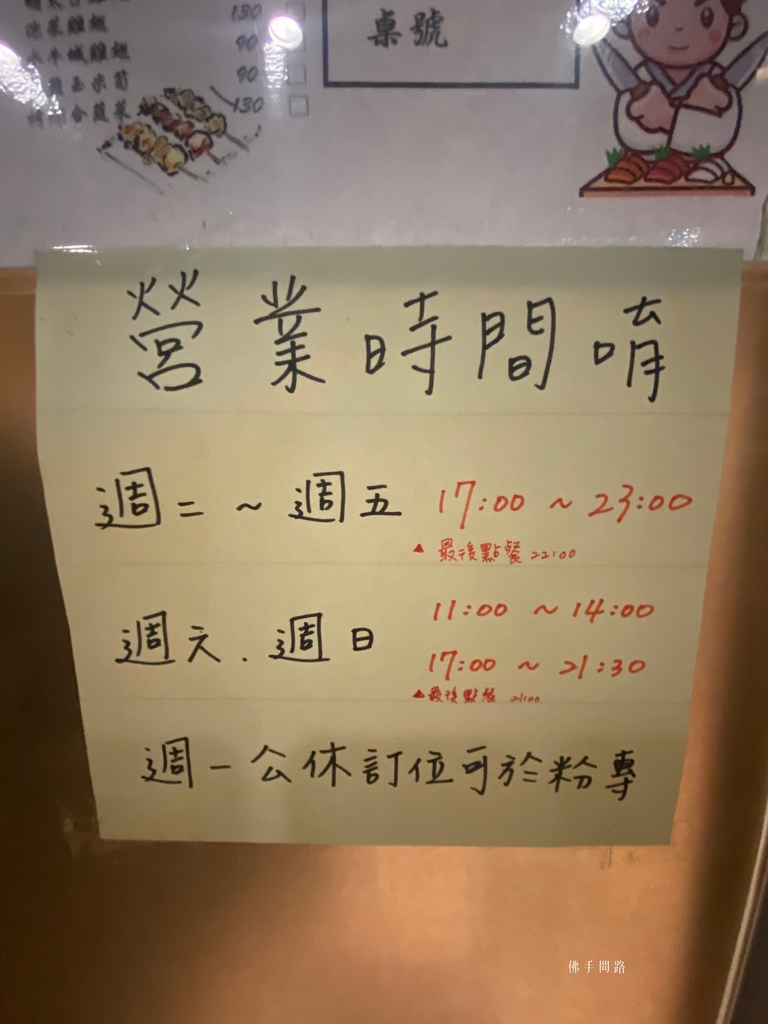 130
泡菜雞翅 90
水牛城雞翅 90
玉米筍 130
合蔬菜
桌號
營業時間唷
週二～週五 17:00～23:00
▲最後點餐 22:00
週六.週日 11:00～14:00
17:00～21:30
▲最後點餐 21:00
週一公休訂位可於粉專
佛手問路